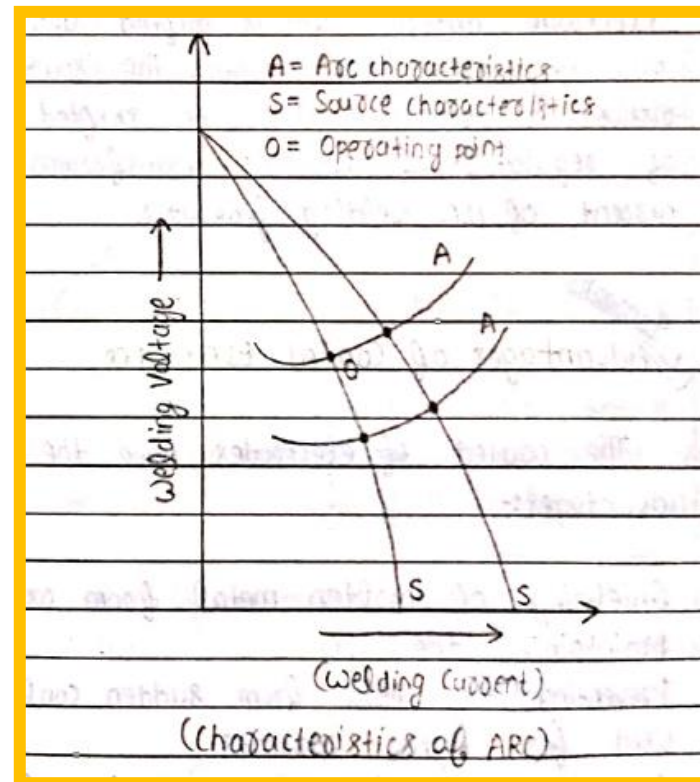 A = Arc characteristics
S = Source characteristics
O = Operating point
A
A
O
Welding Voltage
S
S
(Welding Current)
(Characteristics of ARC)